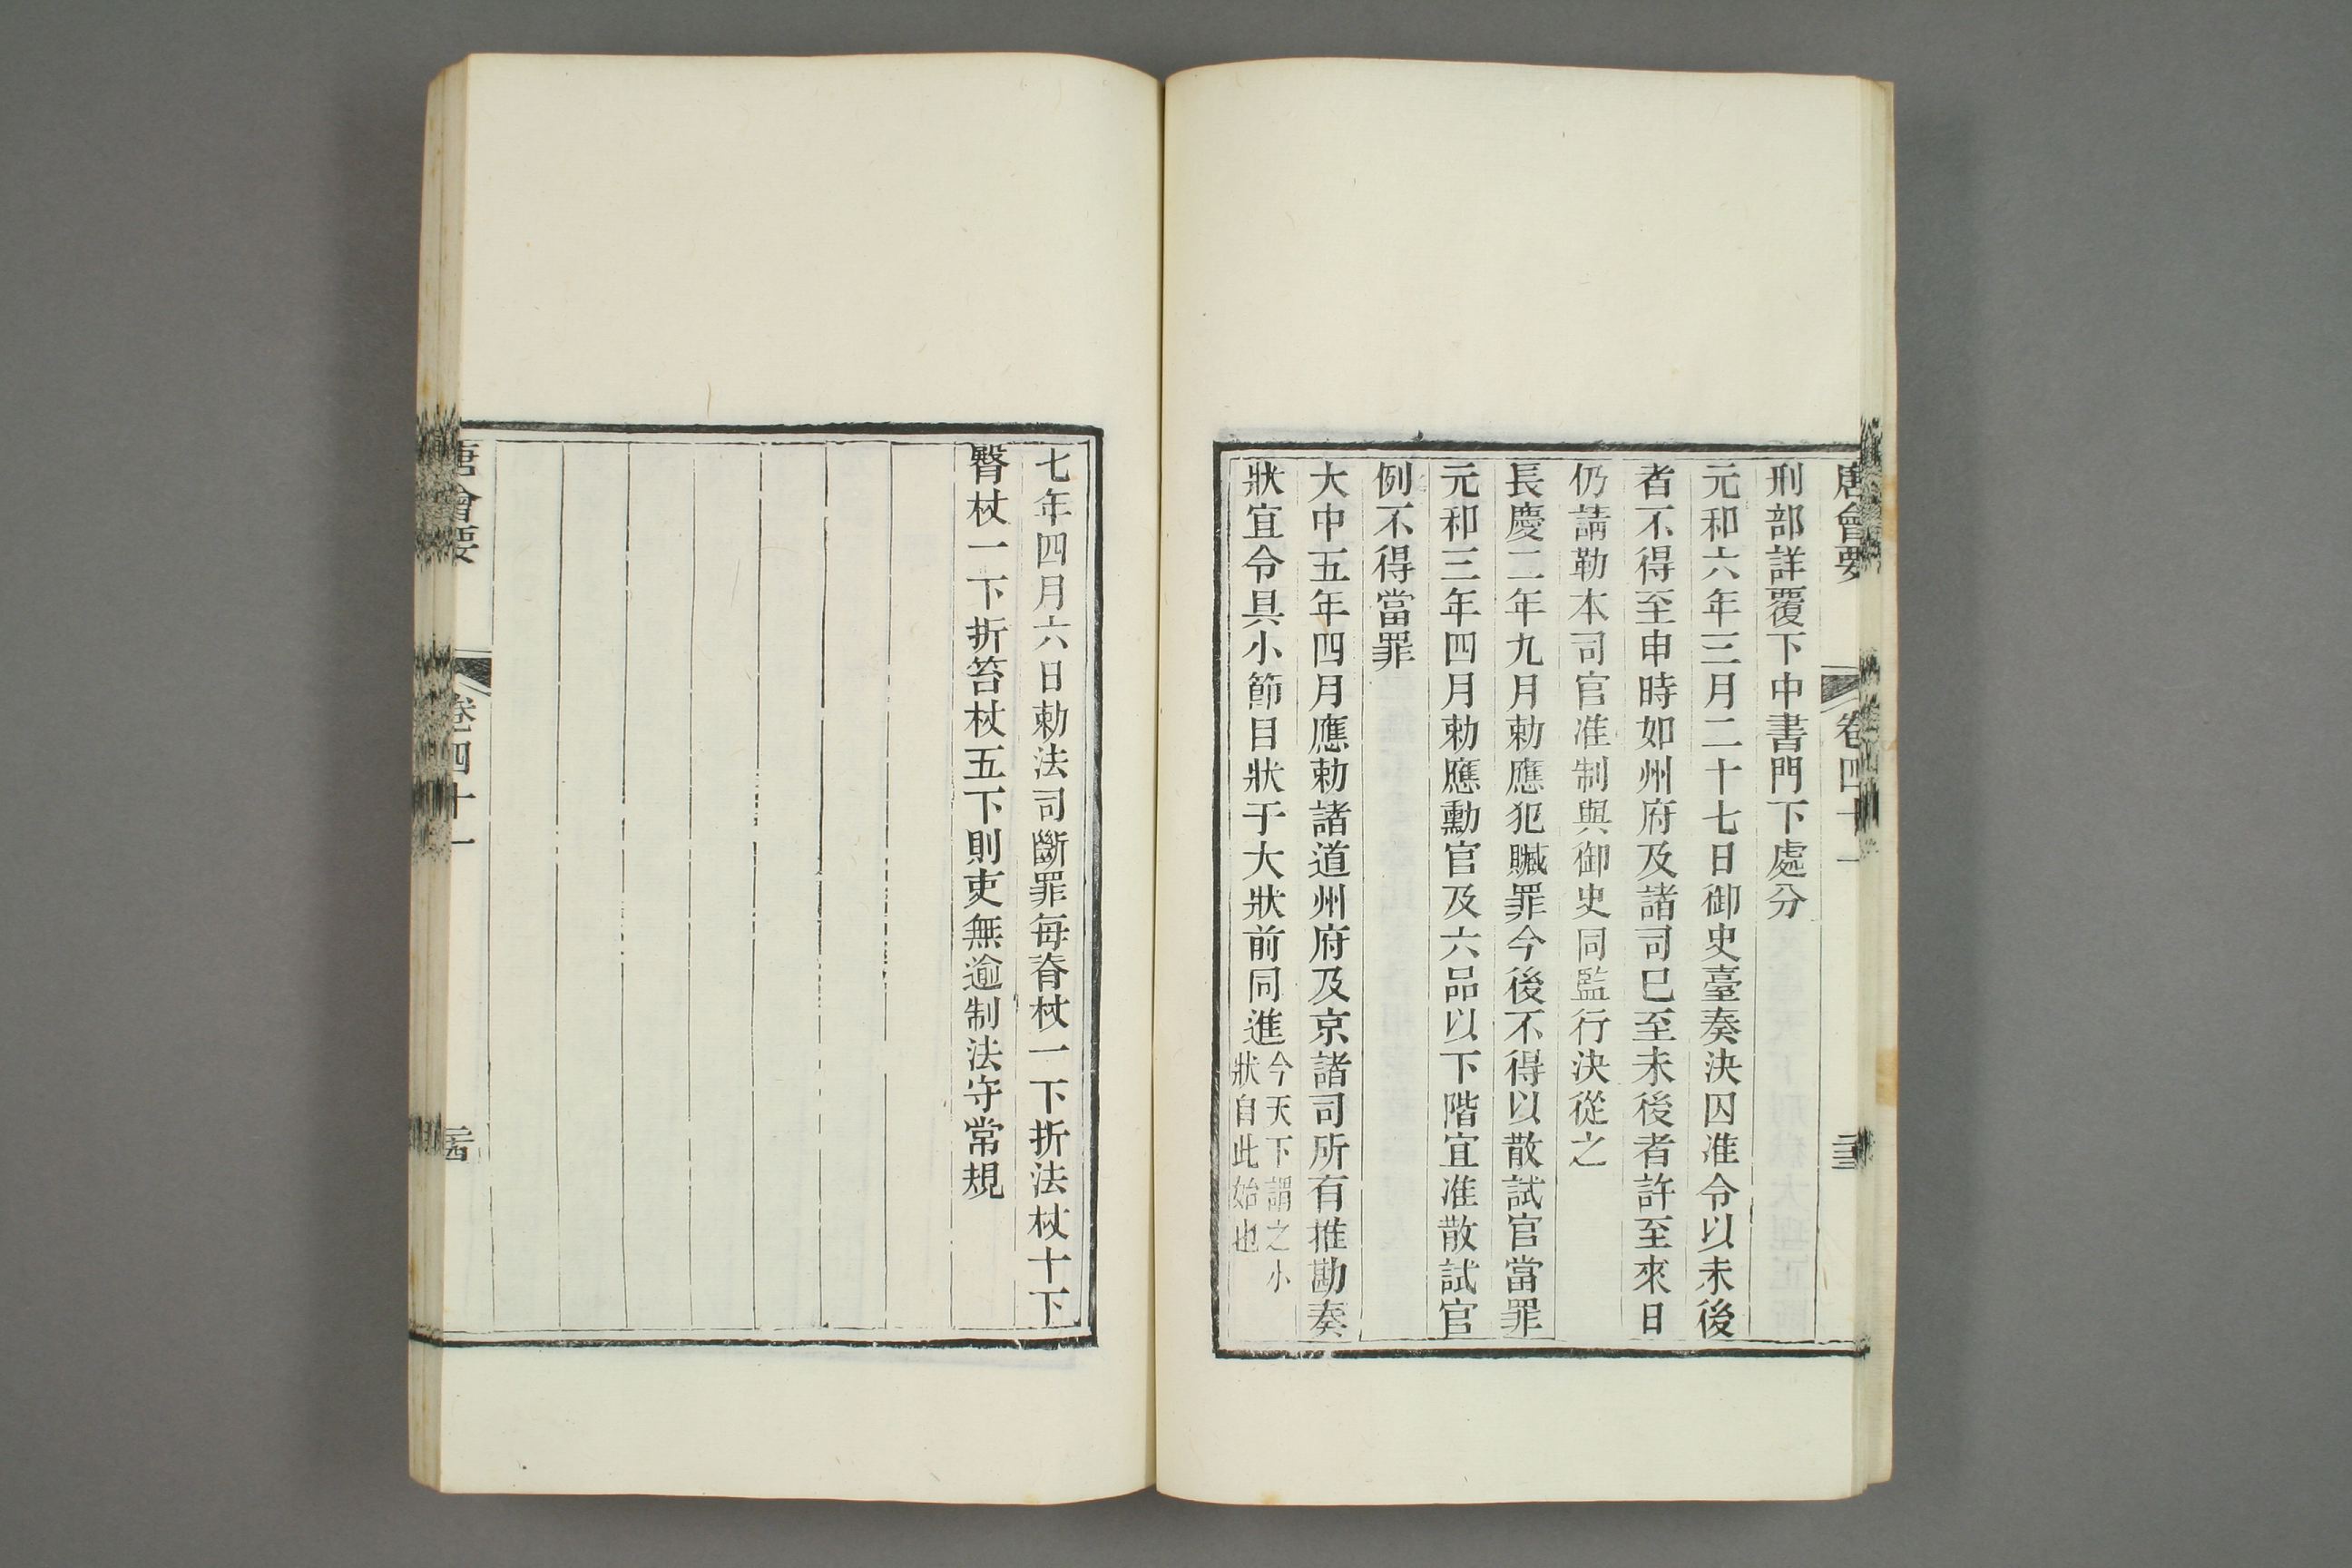 唐會要 卷四十一
刑部詳覆下中書門下處分
元和六年三月二十七日御史臺奏決囚准令以未後
者不得至申時如州府及諸司巳至未後者許至來日
仍請勒本司官准制與御史同監行決從之
長慶二年九月勅應犯贓罪今後不得以散試官當罪
元和三年四月勅應勳官及六品以下階宜准散試官
例不得當罪
大中五年四月應勅諸道州府及京諸司所有推勘奏
狀宜令具小節目狀于大狀前同進
今天下謂之小
狀自此始也
七年四月六日勅法司斷罪每脊杖一下折法杖十下
臀杖一下折笞杖五下則吏無逾制法守常規
唐會要 卷四十一 二十四